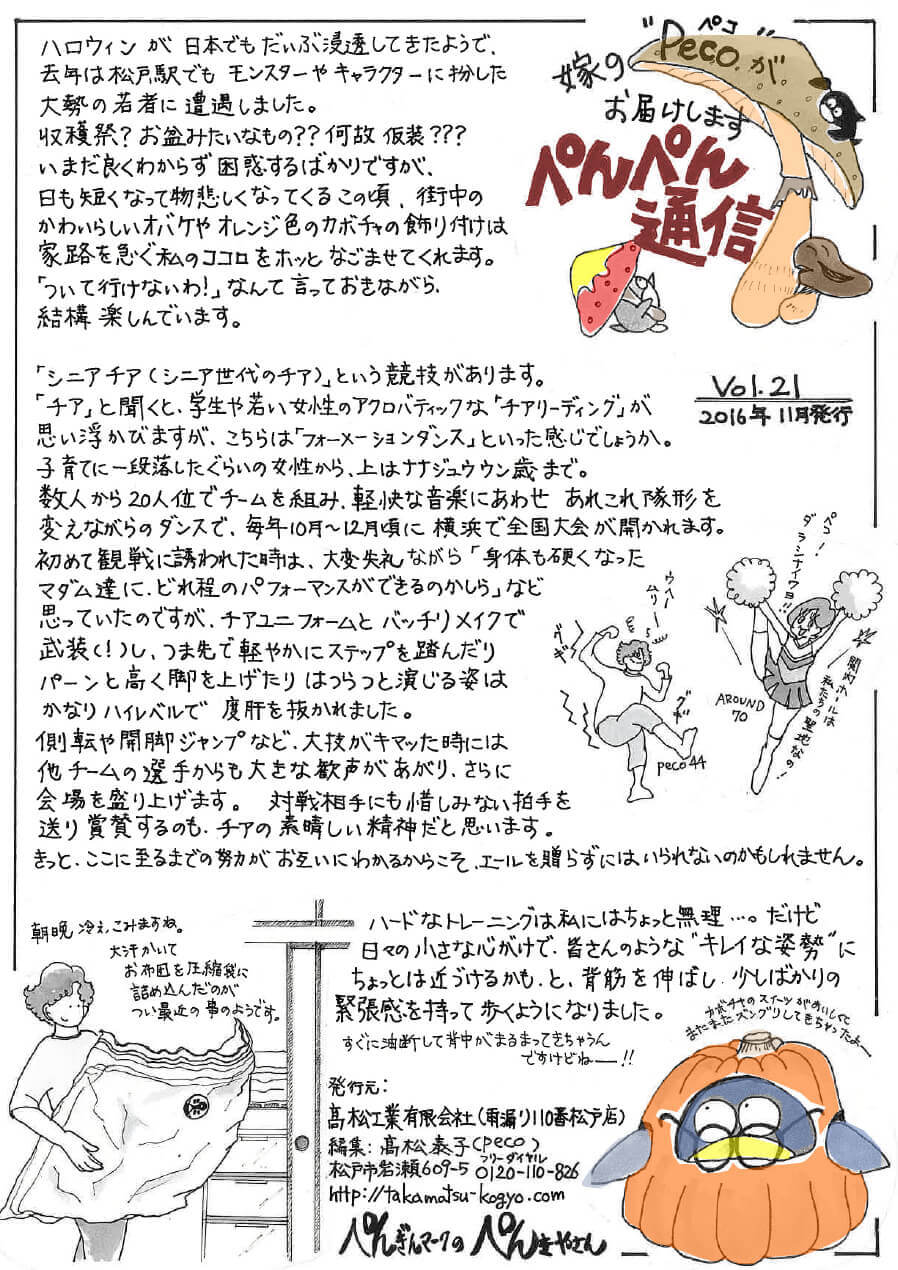 嫁の"Peco"が
ペコ
お届けします
ぺんぺん
通信
Vol.21
2016年11月発行
ハロウィンが日本でもだいぶ浸透してきたようで、
去年は松戸駅でもモンスターやキャラクターに扮した
大勢の若者に遭遇しました。
収穫祭?お盆みたいなもの??何故仮装???
いまだ良くわからず困惑するばかりですが、
日も短くなって物悲しくなってくるこの頃、街中の
かわいらしいオバケやオレンジ色のカボチャの飾り付けは
家路を急ぐ私のココロをホッとなごませてくれます。
「ついて行けないわ!」なんて言っておきながら、
結構楽しんでいます。
「シニアチア(シニア世代のチア)」という競技があります。
「チア」と聞くと、学生や若い女性のアクロバティックな「チアリーディング」が
思い浮かびますが、こちらは「フォーメーションダンス」といった感じでしょうか。
子育てに一段落したぐらいの女性から、上はナナジュウウン歳まで。
数人から20人位でチームを組み、軽快な音楽にあわせ あれこれ隊形を
変えながらのダンスで、毎年10月〜12月頃に横浜で全国大会が開かれます。
初めて観戦に誘われた時は、大変失礼ながら「身体も硬くなった
マダム達に、どれ程のパフォーマンスができるのかしら」など
思っていたのですが、チアユニフォームとバッチリメイクで
武装(!)し、つま先で軽やかにステップを踏んだり
パーンと高く脚を上げたりはつらつと演じる姿は
かなりハイレベルで度肝を抜かれました。
側転や開脚ジャンプなど、大技がキマッた時には
他チームの選手からも大きな歓声があがり、さらに
会場を盛り上げます。 対戦相手にも惜しみない拍手を
送り賞賛するのも、チアの素晴しい精神だと思います。
きっと、ここに至るまでの努力がお互いにわかるからこそ、エールを贈らずにはいられないのかもしれません。
ウヘー
ムリー
グギ
グギ
peco44
ペコ!
ダラシナイワヨ!!
AROUND
70
関内ホールは
私たちの聖地なの!
ハードなトレーニングは私にはちょっと無理…。だけど
日々の小さな心がけで、皆さんのような"キレイな姿勢"に
ちょっとは近づけるかも、と、背筋を伸ばし、少しばかりの
緊張感を持って歩くようになりました。
すぐに油断して背中がまるまってきちゃうん
ですけどねー!!
朝晩冷えこみますね。
大汗かいて
お布団を圧縮袋に
詰め込んだのが
つい最近の事のようです。
カボチャのスイーツがおいしくて
またまたズングリしてきちゃったよー
発行元:
髙松工業有限会社(雨漏り110番松戸店)
編集:髙松泰子(peco)
フリーダイヤル
松戸市岩瀬609-5 0120-110-826
http://takamatsu-kogyo.com
ぺんぎんマークのぺんきやさん